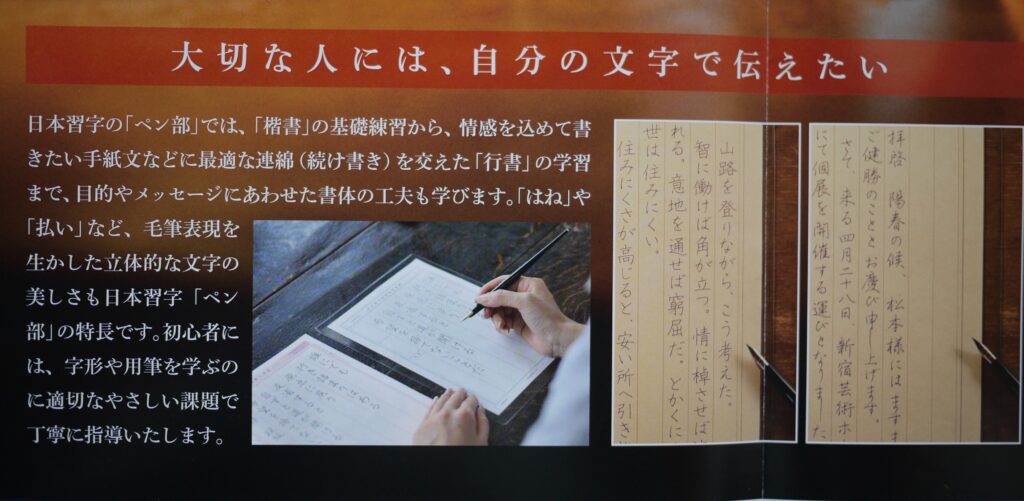 大切な人には、自分の文字で伝えたい
日本習字の「ペン部」では、「楷書」の基礎練習から、情感を込めて書
きたい手紙文などに最適な連綿（続け書き）を交えた「行書」の学習
まで、目的やメッセージにあわせた書体の工夫も学びます。「はね」や
「払い」など、毛筆表現を
生かした立体的な文字の
美しさも日本習字「ペン
部」の特長です。初心者に
は、字形や用筆を学ぶの
に適切なやさしい課題で
丁寧に指導いたします。
山路を登りながら、こう考えた。
智に働けば角が立つ。情に棹させば
れる。意地を通せば窮屈だ。とかくに
世は住みにくい。
住みにくさが高じると、安い所へ引き
拝啓 陽春の候、松本様にはます
ご健勝のこととお慶び申し上げます。
さて、来る四月二十八日、新宿芸術ホ
にて個展を開催する運びとなりました